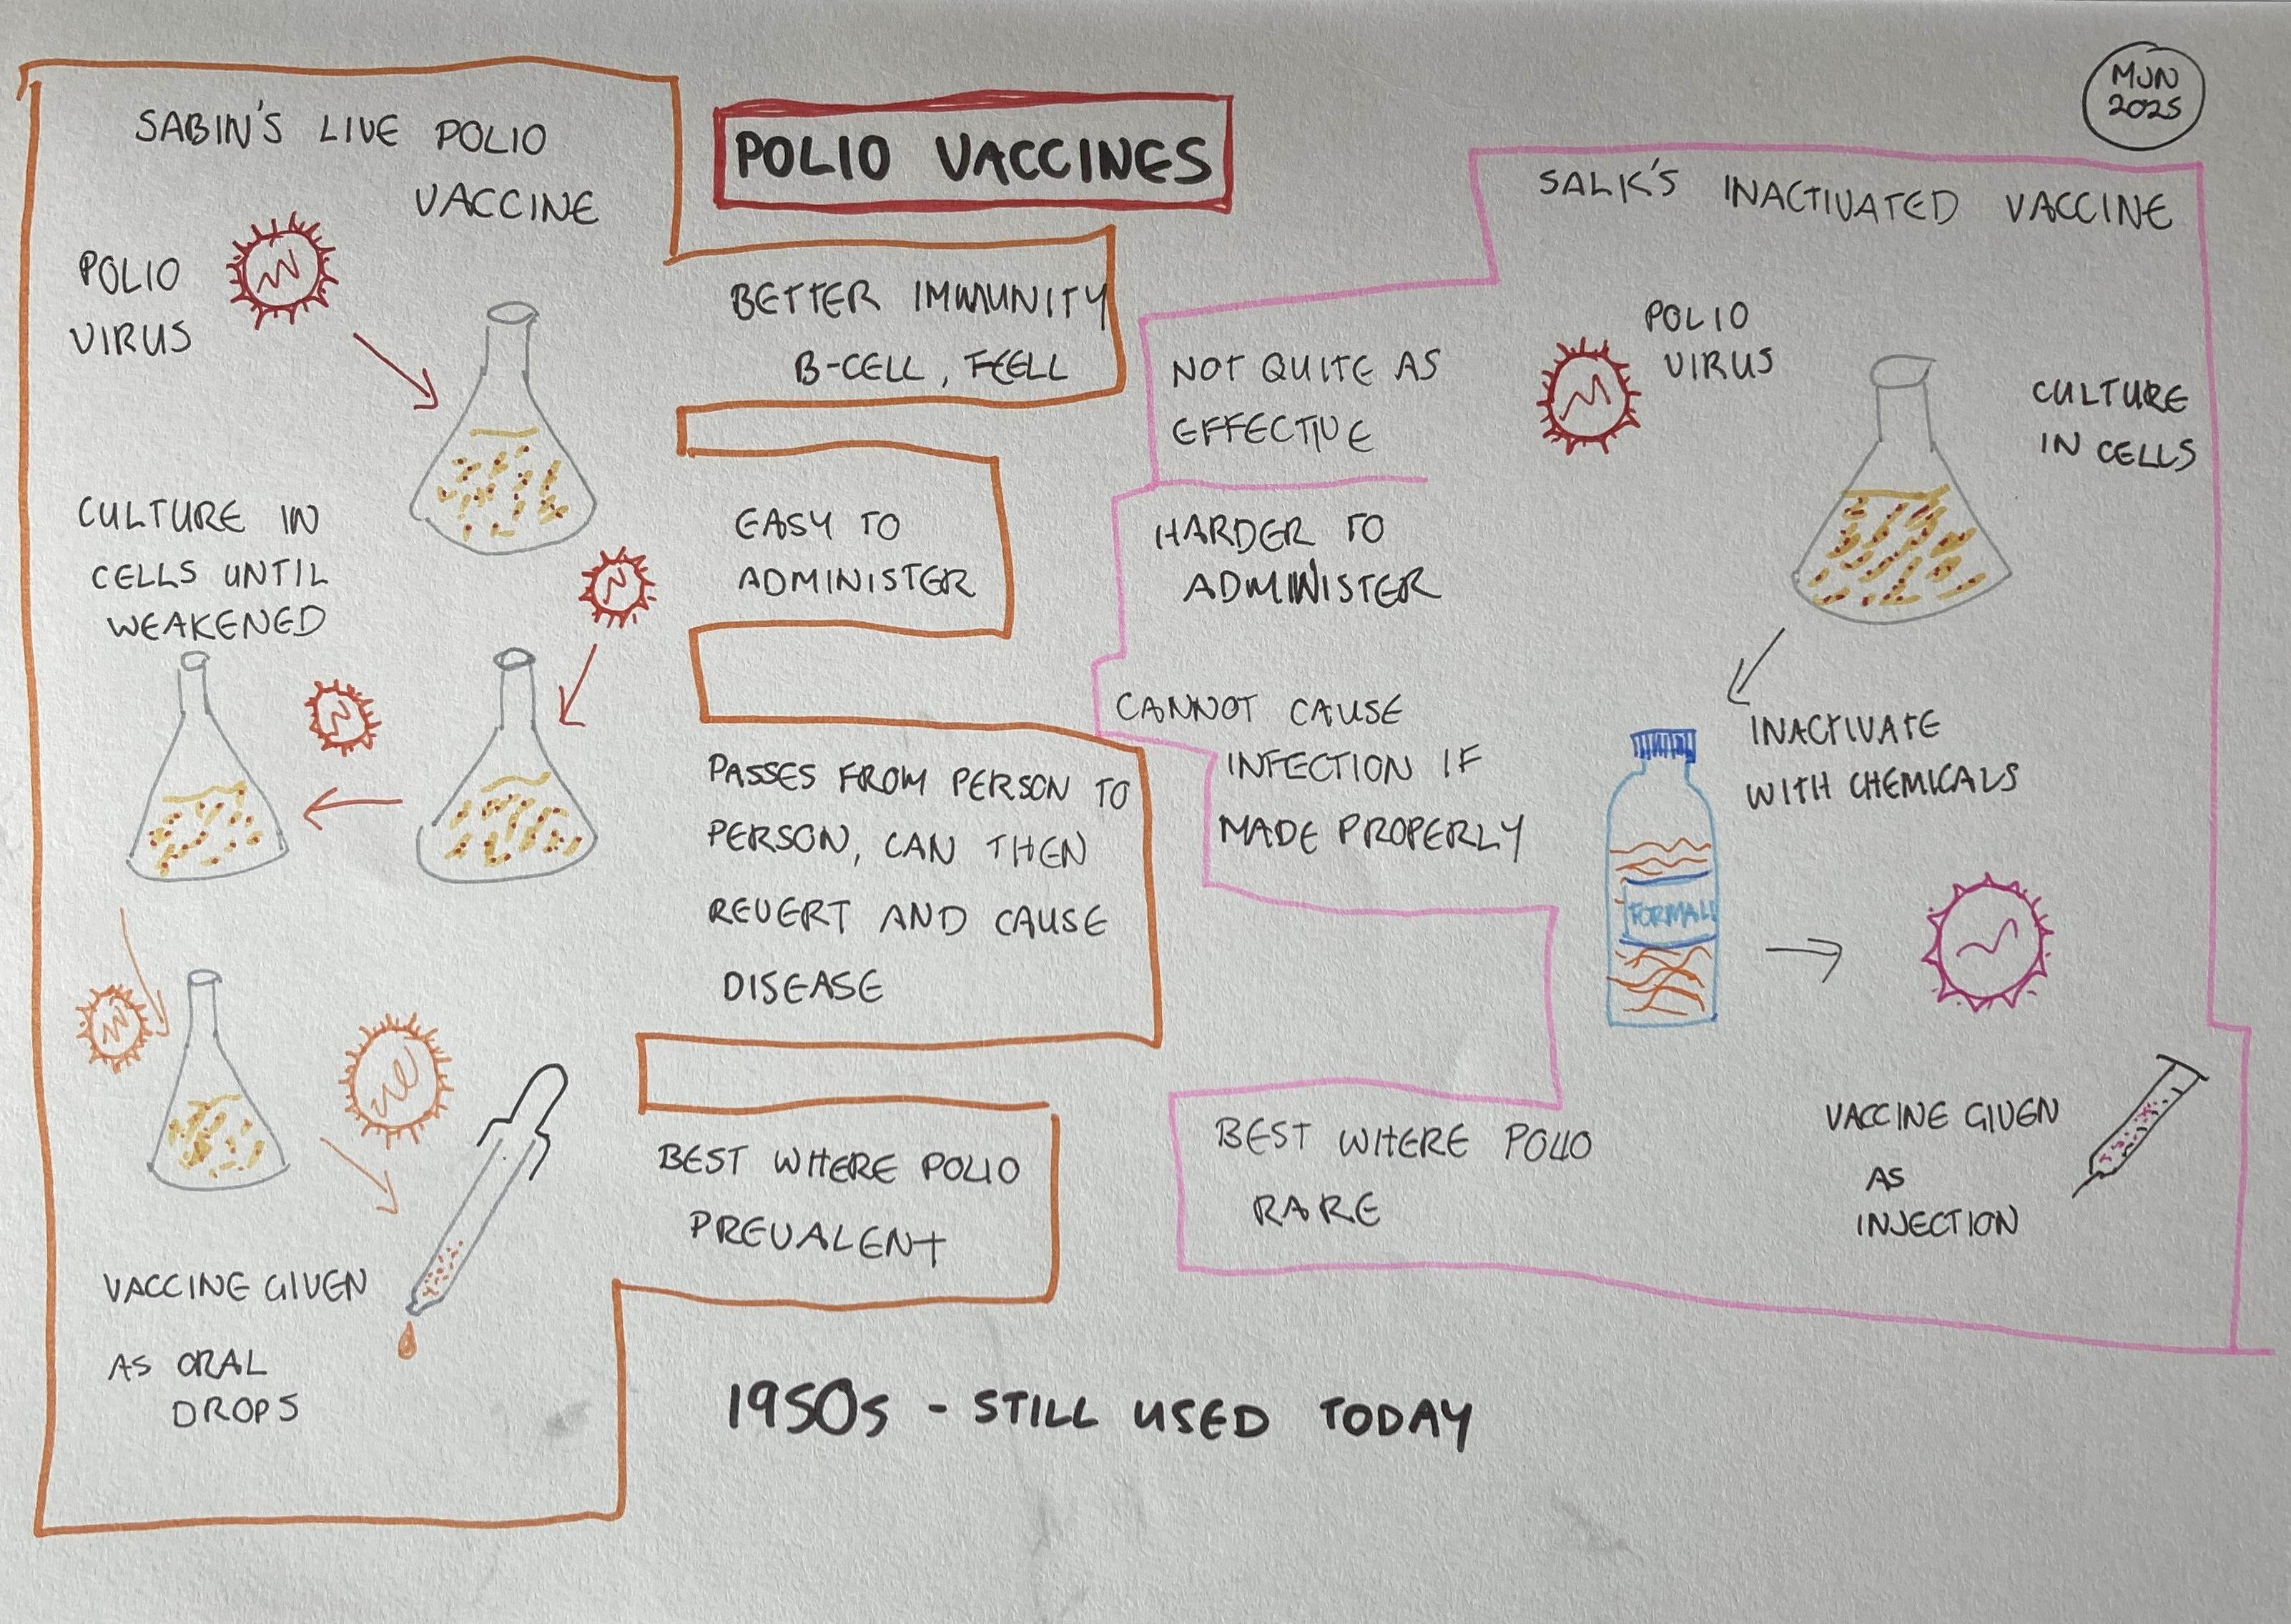 POLIO VACCINES
MJN
2025
SABIN'S LIVE POLIO
VACCINE
POLIO
VIRUS
CULTURE IN
CELLS UNTIL
WEAKENED
VACCINE GIVEN
AS ORAL
DROPS
BETTER IMMUNITY
B-CELL, TCELL
EASY TO
ADMINISTER
PASSES FROM PERSON TO
PERSON, CAN THEN
REVERT AND CAUSE
DISEASE
BEST WHERE POLIO
PREVALENT
SALK'S INACTIVATED VACCINE
NOT QUITE AS
EFFECTIVE
HARDER TO
ADMINISTER
CANNOT CAUSE
INFECTION IF
MADE PROPERLY
BEST WHERE POLIO
RARE
POLIO
VIRUS
CULTURE
IN CELLS
INACTIVATE
WITH CHEMICALS
FORMALI
VACCINE GIVEN
AS
INJECTION
1950s - STILL USED TODAY